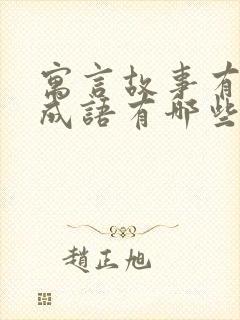 寓言故事有
成語有哪些
趙正旭